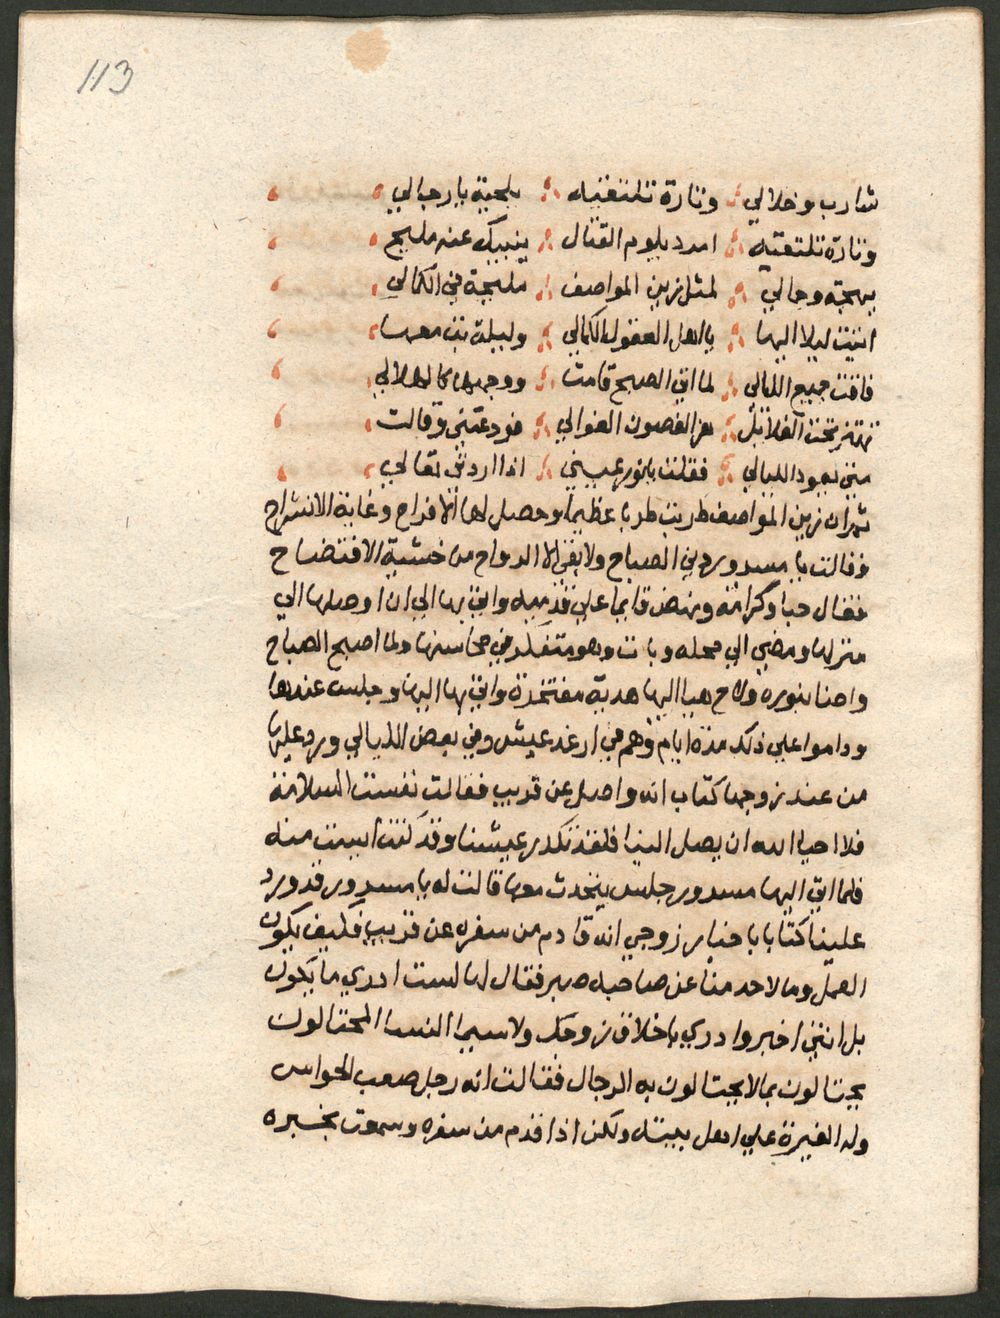 113
شارب وخلالي وتارة تلتقيه بلحية يا رجالي
وتارة تلتقيه امرد يلوم القتال ينبيك عنه مليح
ببهجة وجمالي لمثل زين المواصف مليحة في الكمالي
اتيت ليلا اليها يا اهل العقول الكمالي وليلة بت معها
فاقت جميع الليالي لما اتي الصبح قامت ووجهها كالهلالي
تهتز تحت الغلائل هز الغصون العوالي فودعتني وقالت
متي تعود الليالي فقلت يا نور عيني اذا اردتي تعالي
ثم ان زين المواصف طربت طربا عظيما وحصل لها الافراح وغاية الانشراح
فقالت يا مسرور دني الصباح ولا بقي الا الرواح من خشية الافتضاح
فقال حبا وكرامة ونهض قايما علي قدميه واتي بها الي ان اوصلها الي
منزلها ومضي الي محله وبات وهو متفكر في محاسنها ولما اصبح الصباح
واضا بنوره ولاح هيا اليها هدية مفتخرة واتي بها اليها وجلس عندها
وداموا علي ذلك مدة ايام وهم في ارغد عيش وفي بعض الليالي ورد عليها
من عند زوجها كتاب انه واصل عن قريب فقالت نفست السلامة
فلا احيا الله ان يصل الينا فلقد تكدر عيشنا وقد كنت ايست منه
فلما اتي اليها مسرور جلس يتحدث معها قالت له يا مسرور قد ورد
علينا كتابا باخبار زوجي انه قادم من سفره عن قريب فكيف يكون
العمل وما لاحد منا عن صاحبه صبر فقال لها لست ادري ما يكون
بل انتي اخبر وادري باخلاق زوجك ولا سيما النسا المحتالون
يحتالون بما لا يحتالون به الرجال فقالت انه رجل صعب الحواس
وله الغيرة علي اهل بيته ولكن اذا قدم من سفره وسمعت بخبره